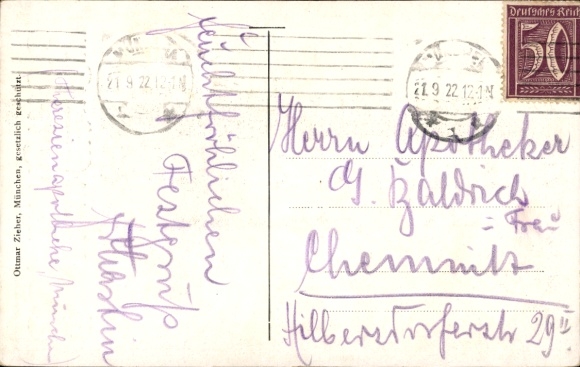 Ottmar Zieher, München, gesetzlich geschützt.
feuchtfröhlichen
Festgruß
Theresienapotheke München
21.9.22.12-1N
21.9.22.12-1N
Deutsches Reich
50
Herrn Apotheker
G. Baldrich
= Frau
Chemnitz
Hilbersdorferstr 29 II